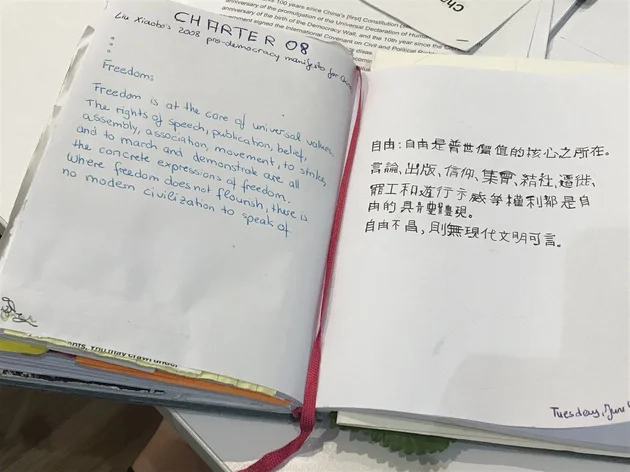 100 years since China's [first] Constitution
anniversary of the promulgation of the Universal Declaration of Human
anniversary of the birth of the Democracy Wall, and the 10th year since the
signed the International Covenant on Civil and Political
CHARTER 08
Liu Xiaobo's 2008 pro-democracy manifesto for
Freedom:
Freedom is at the core of universal values.
The rights of speech, publication, belief,
assembly, association, movement, to strike,
and to march and demonstrate are all
the concrete expressions of freedom.
Where freedom does not flourish, there is
no modern civilization to speak of
You may crawl under
自由:自由是普世價值的核心之所在。
言論、出版、信仰、集會、結社、遷徙、
罷工和遊行示威等權利都是自
由的具體體現。
自由不昌,則無現代文明可言。
Tuesday, June